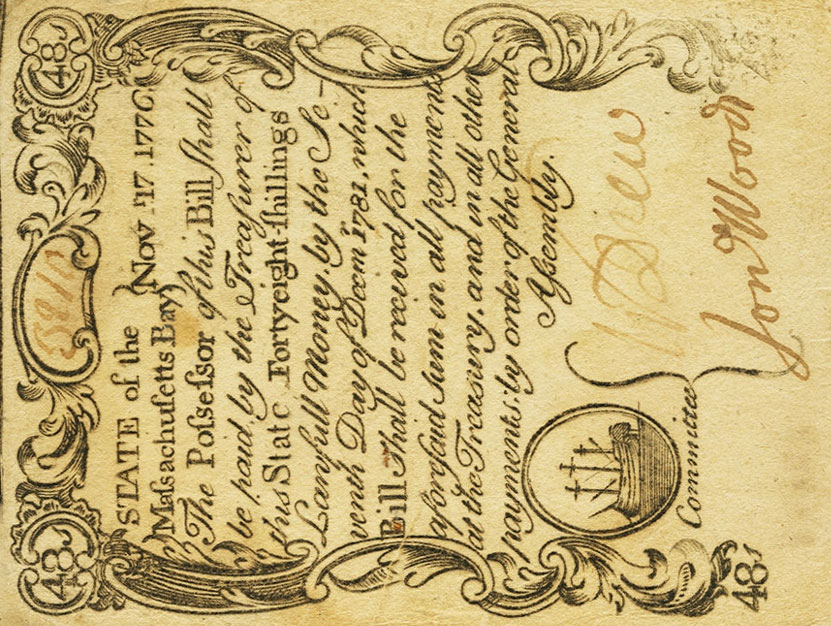 48s 5210 48s
STATE of the } Nov. 17. 1776.
Maſsachuſetts Bay }
The Poſseſsor of this Bill ſhall
be paid, by the Treaſurer of
this State Fortyeight-ſhillings
Lawfull Money, by the Se-
venth Day of Decm. 1782, which
Bill ſhall be received for the
aforesaid sum in all payments
at the Treasury, and in all other
payments; by order of the General
Aſsembly.
Committee
W Drew
Jon Wood
48s